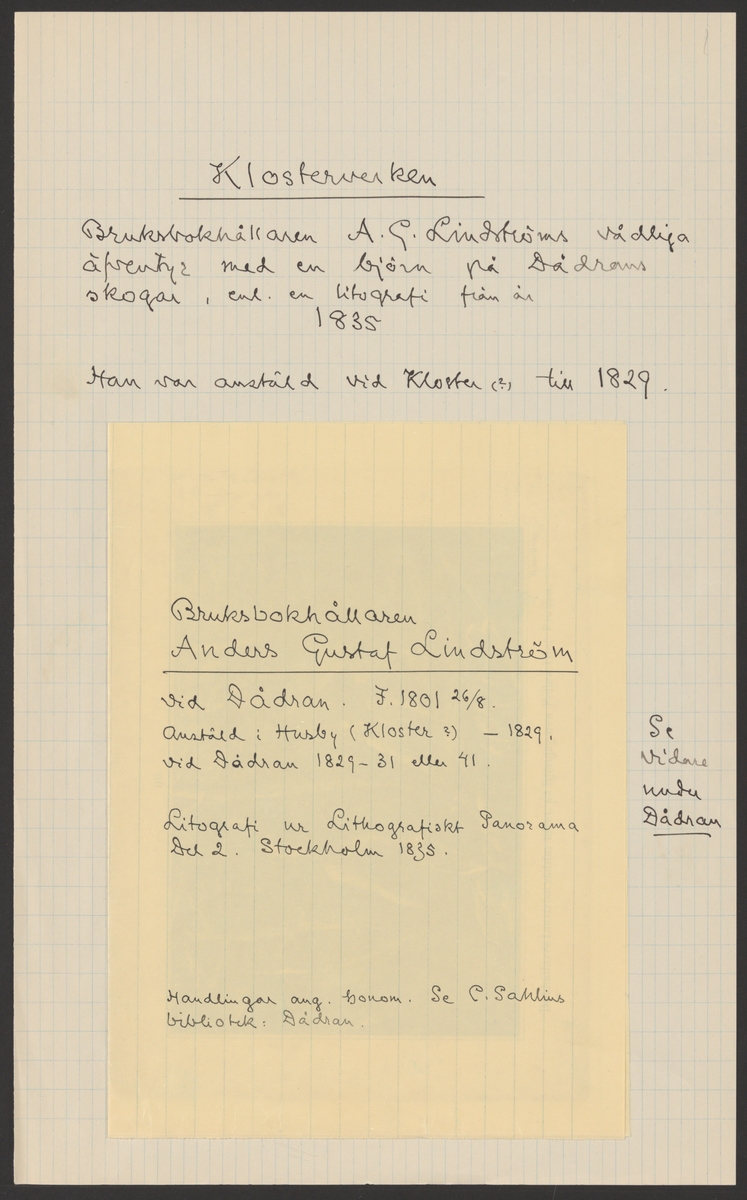 Klosterverken
Bruksbokhållaren A. G. Lindströms vådliga
äfventyr med en björn på Dådrans
skogar, enl. en litografi från år
1835
Han var anstäld vid Kloster (?) till 1829.
Bruksbokhållaren
Anders Gustaf Lindström
vid Dådran. F. 1801 26/8.
Anstäld i Husby (Kloster?) — 1829.
vid Dådran 1829–31 eller 41.
Litografi ur Lithografiskt Panorama
Del 2. Stockholm 1835.
Handlingar ang. honom. Se C. Sahlins
bibliotek: Dådran.
Se
vidare
under
Dådran